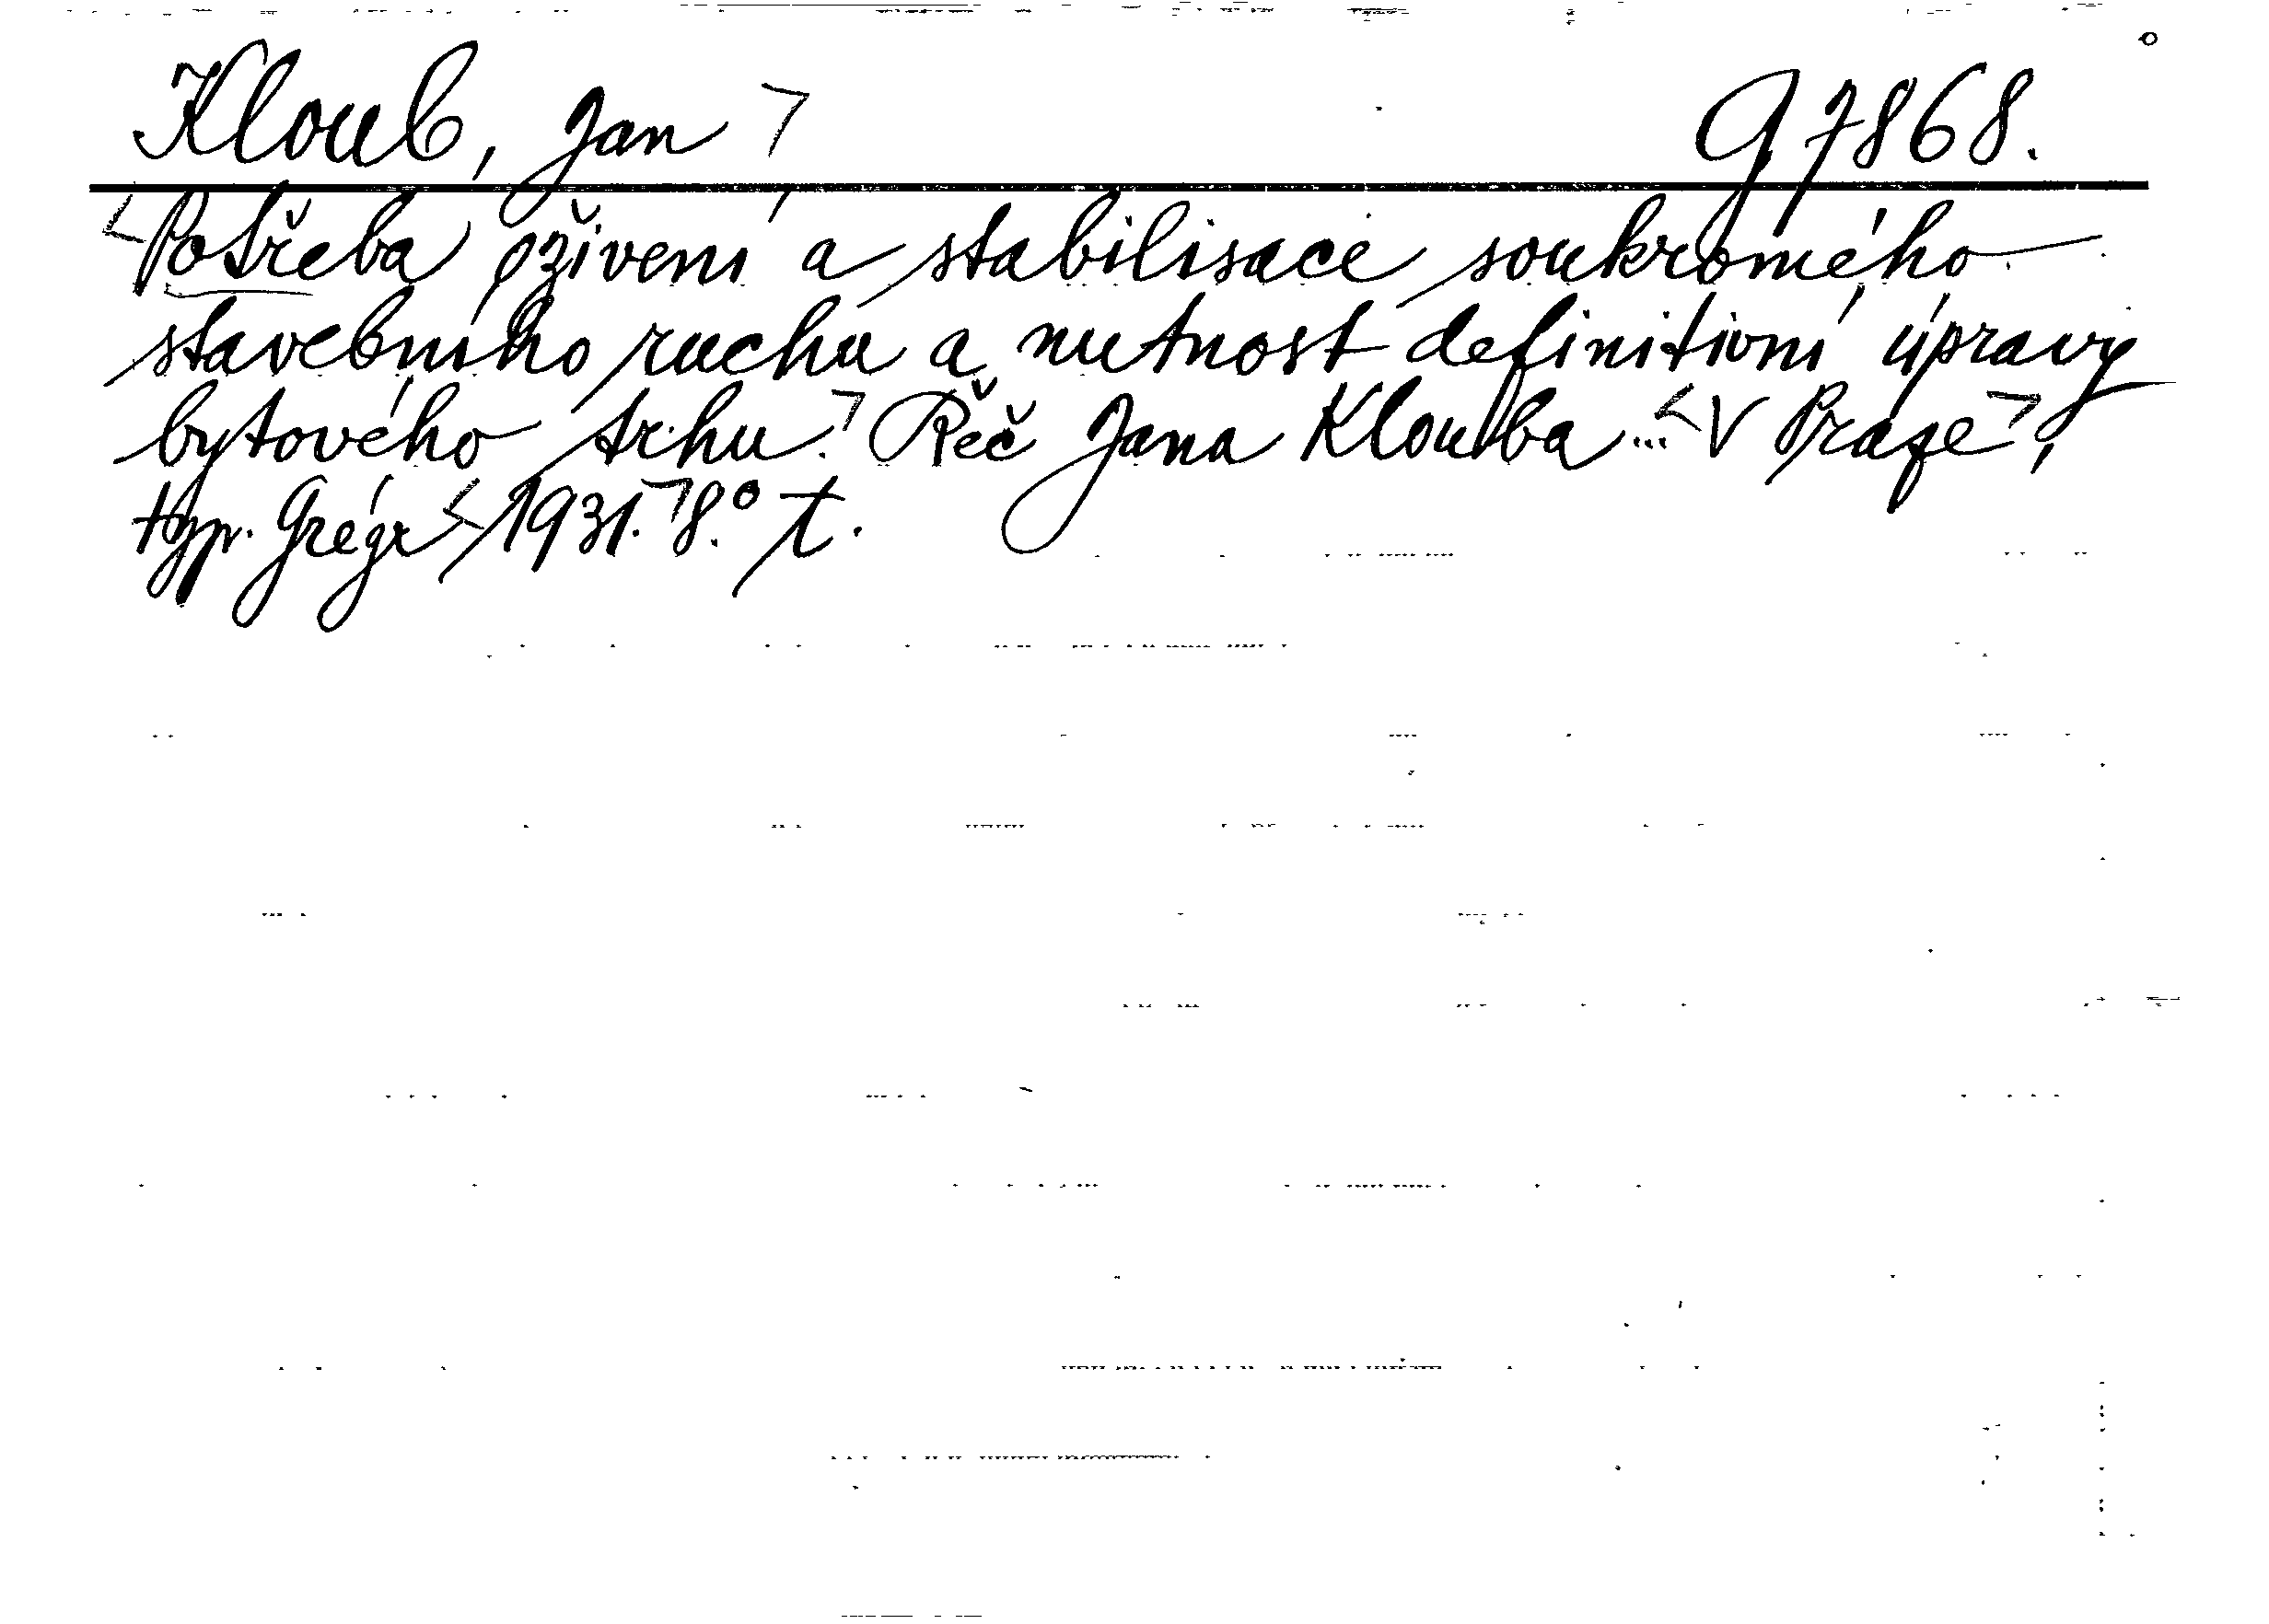 Kloub, Jan ㄱ g 7868.
<Potřeba oživení a stabilisace soukromého
stavebního ruchu a nutnost definitivní úpravy
bytového trhu.ㄱ Řeč Jana Klouba ... <V Prazeㄱ,
typ. Grégr <1931.ㄱ 8.° t.